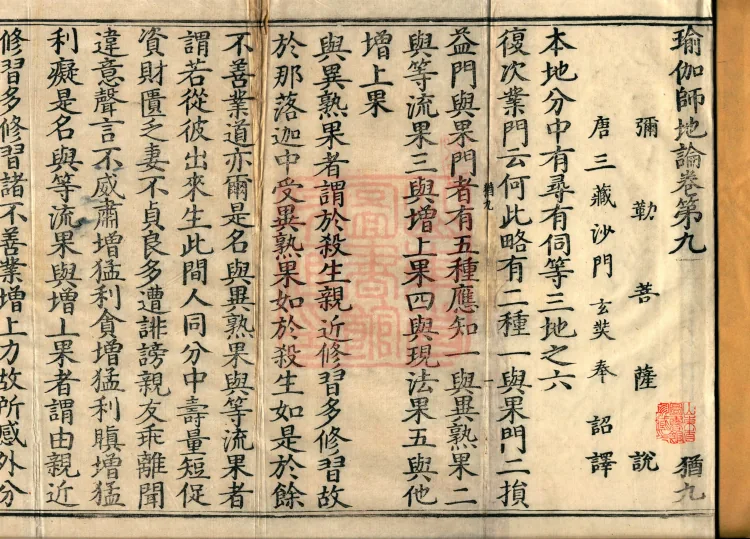 瑜伽師地論卷第九 猶九
彌勒菩薩說
唐三藏沙門玄奘奉詔譯
本地分中有尋有伺等三地之六
復次業門云何此略有二種一與果門二損
益門與果門者有五種應知一與異熟果二
猶九
與等流果三與增上果四與現法果五與他
增上果
與異熟果者謂於殺生親近修習多修習故
於那落迦中受異熟果如於殺生如是於餘
不善業道亦爾是名與異熟果與等流果者
謂若從彼出來生此間人同分中壽量短促
資財匱乏妻不貞良多遭誹謗親友乖離聞
違意聲言不威肅增猛利貪增猛利瞋增猛
利癡是名與等流果與增上果者謂由親近
修習多修習諸不善業增上力故所感外分